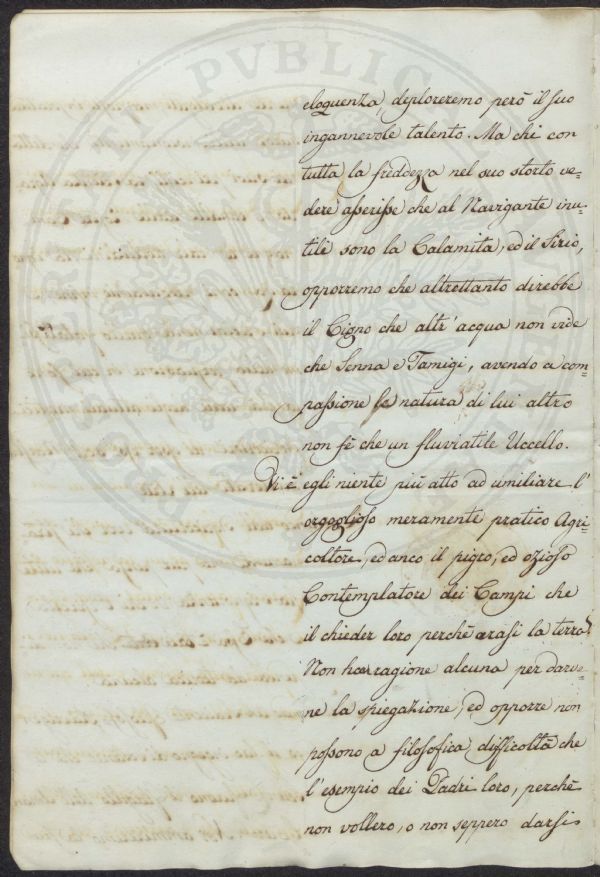 eloquenza, deploreremo però il suo
ingannevole talento. Ma chi con
tutta la freddezza nel suo storto ve=
dere asserisse che al Navigante inu=
tili sono la Calamita, ed il Sirio,
opporremo che altrettanto direbbe
il Cigno che altr' acqua non vide
che Senna e Tamigi, avendo a com=
passione se natura di lui altro
non fè che un fluviatile Uccello.
Vi è egli niente più atto ad umiliare l'
orgoglioso meramente pratico Agri=
coltore, ed anco il pigro, ed ozioso
Contemplatore dei Campi che
il chieder loro perchè arasi la terra?
Non han ragione alcuna per darve=
ne la spiegazione, ed opporre non
possono a filosofica difficoltà che
l'esempio dei Padri loro, perchè
non vollero, o non seppero darsi